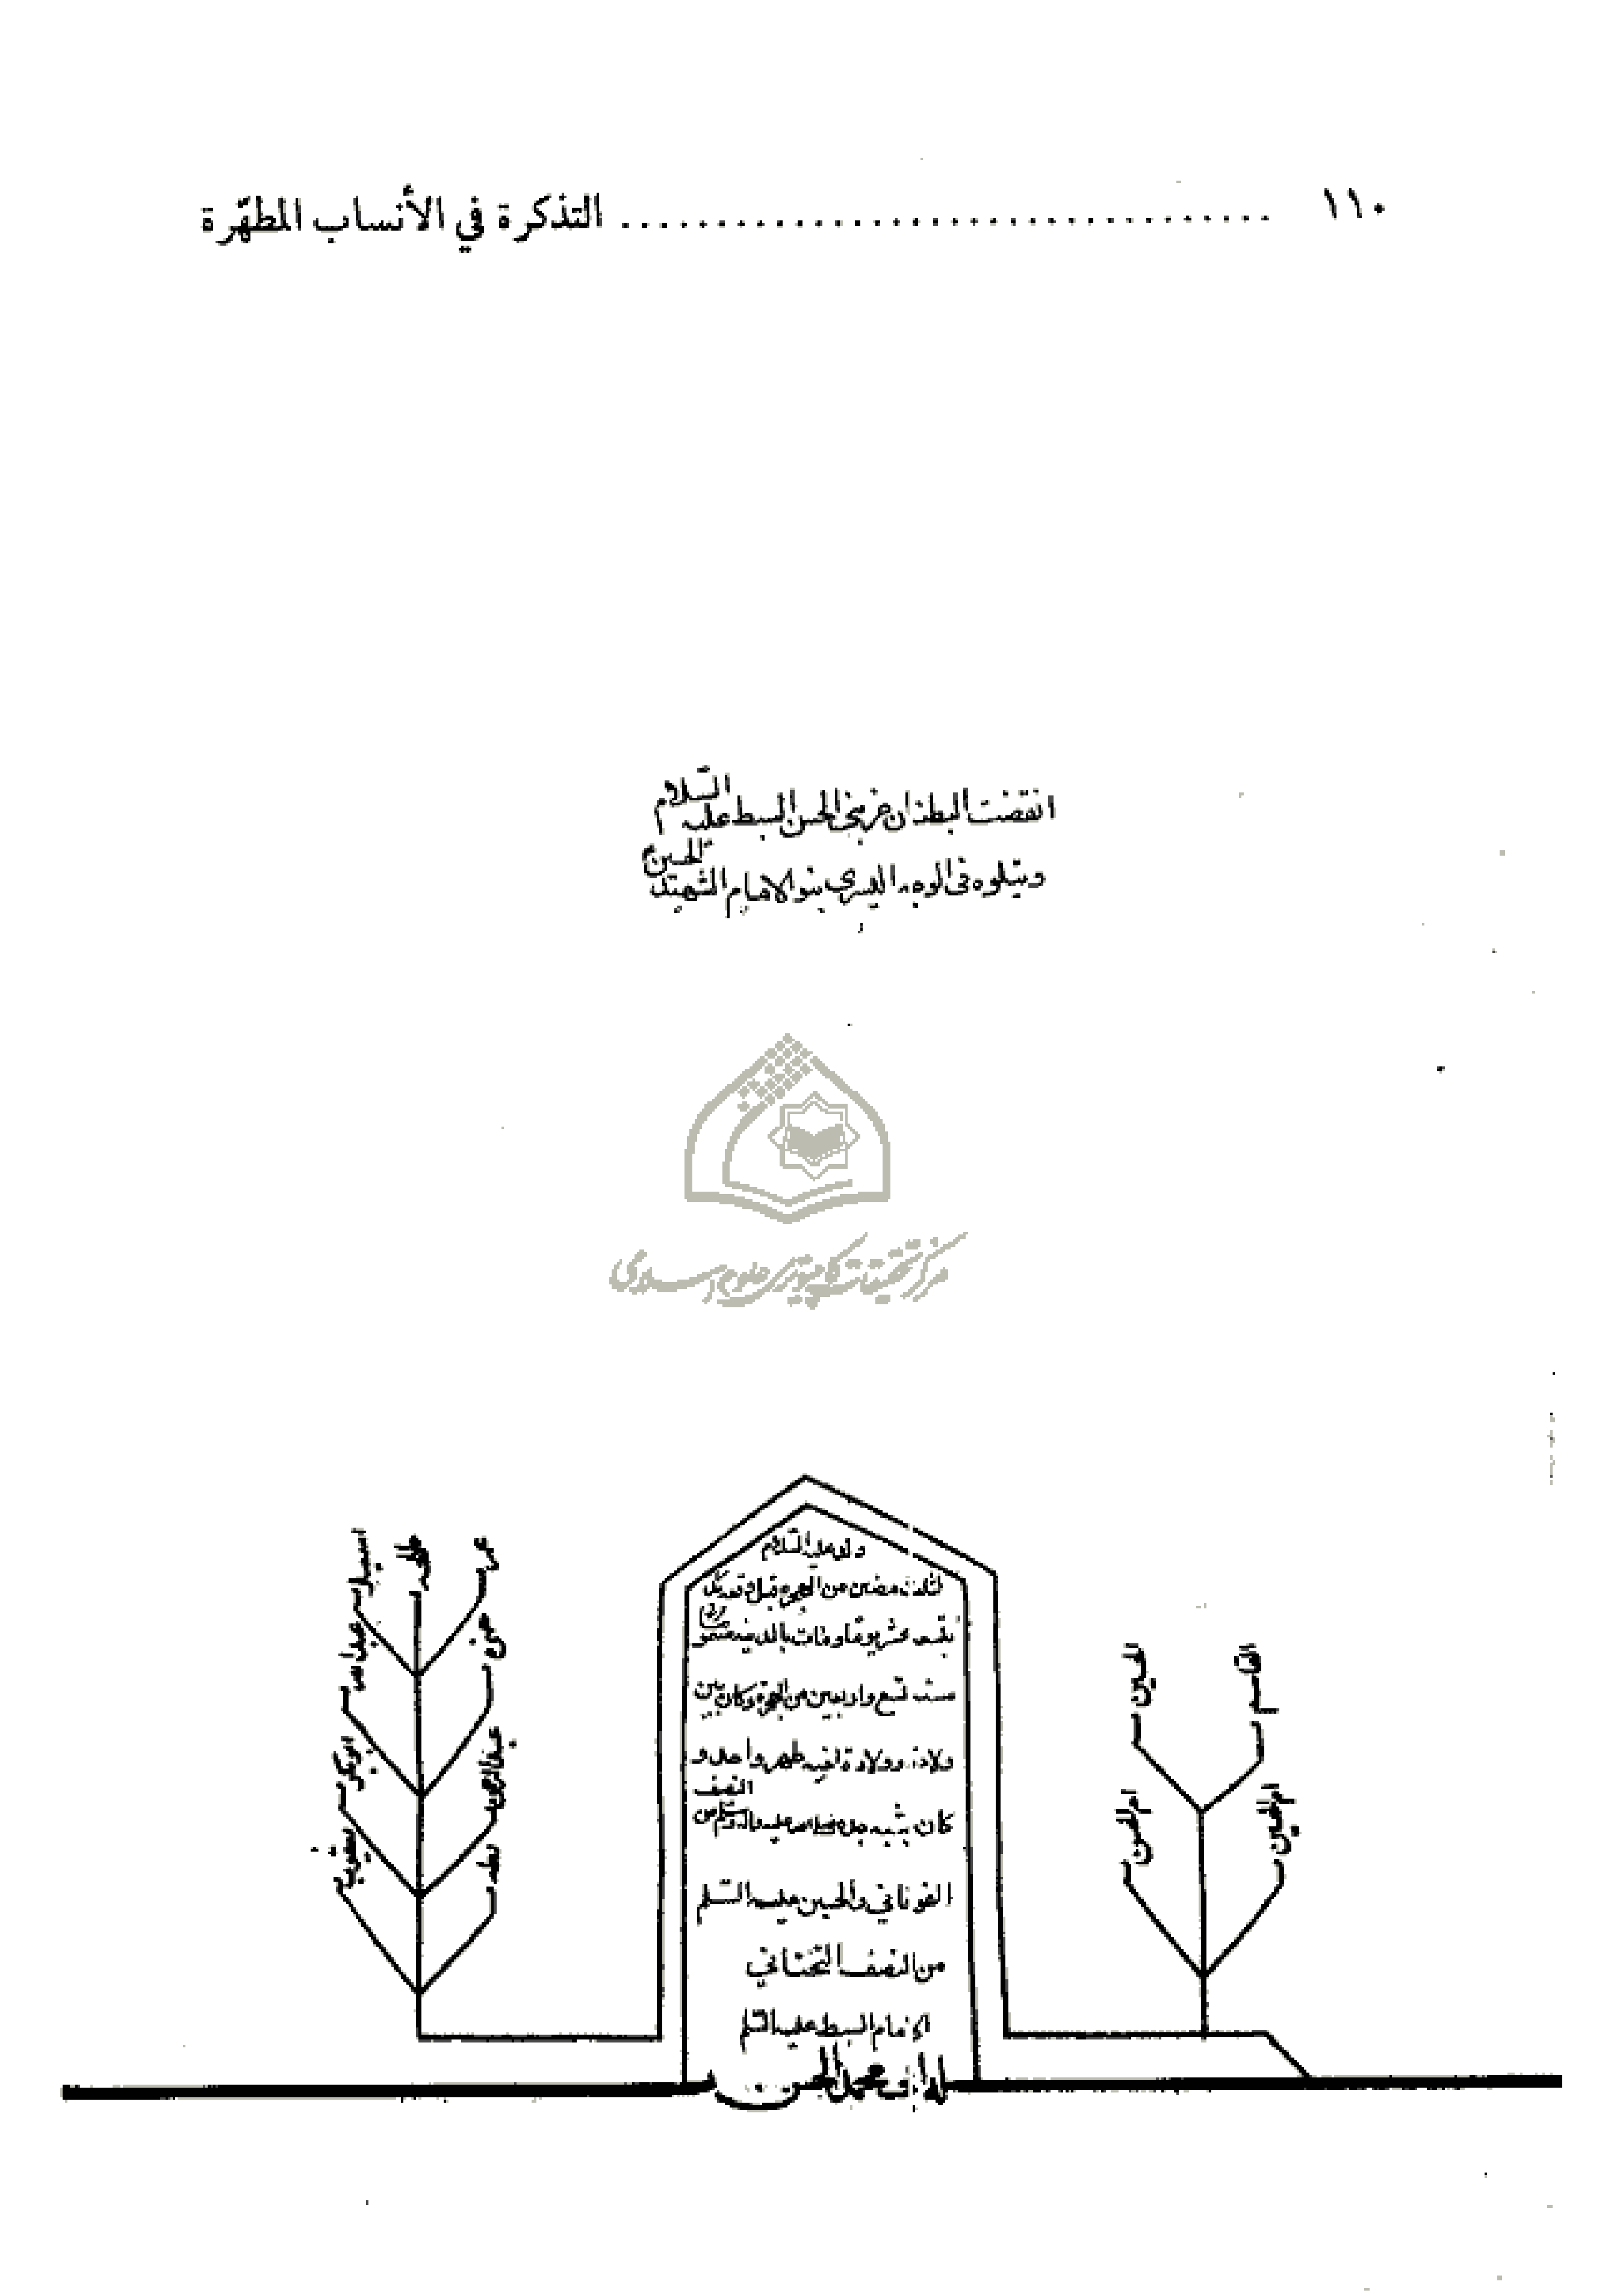 ١١٠ ................................ التذكرة في الأنساب المطهّرة
انقضت البطنان من بني الحسن السبط عليه السلام
ويتلوه في الوجه اليسرى بنو الامام الشهيد الحسين
مركز تحقيقات كامپيوتری علوم اسلامی
ولد عليه السلام
لثلاث مضين من الهجرة قبل
عشر يوما ومات بالمدينة
سنة تسع واربعين من الهجرة وكان بين
ولادته وولادة اخيه طهر واحد و
كان يشبه جده صلى الله عليه واله وسلم من النصف
الفوقاني والحسين عليه السلم
من النصف التحتاني
الإمام السبط عليه السلم
ابى محمد الحسن
القاسم
الحسين
ام الحسين
ام الحسن
عمر
طلحة
اسمعيل
حمزه
عبد الله
عبد الرحمن
ابو بكر
يعقوب